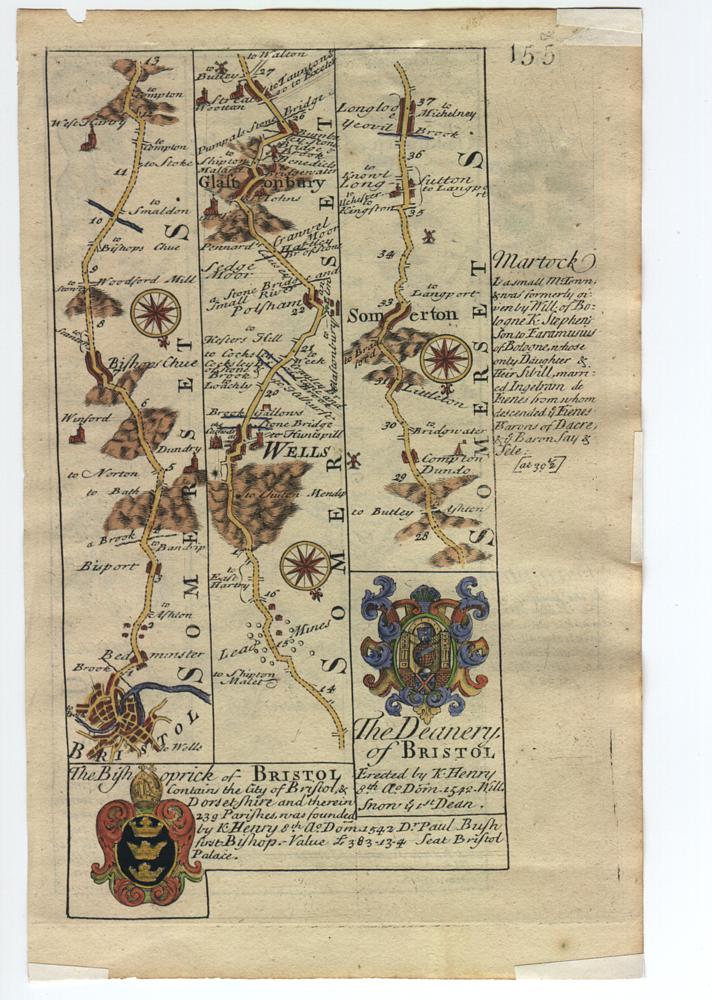 155
13
to Compton
West Hartry
12
to Compton
11
to Stoke
10
to Smaldon
to
Bishops Chue
9
Woodford Mill
8
Bishops Chue
6
Winford
Dundry
5
to Norton
to Bath
a Brook
4
to Bandrip
Bisport
3
to
Ashton
2
Bedminster
Brook
1
BRISTOL
to Wells
SOMERSET S.
to Walton
to
Butley
27
to Taunton &
so to Exeter
Bridge
26
Stone
to
Shipton
Malet
Glastonbury
St Johns
Pennard
Sedge
Moor
a Stone Bridge and
Small River
Polsham
22
to
Kesters Hill
21
to
Week
to Cocks
20
Brook
Gallows
Stone Bridge
to Huntspill
WELLS
to Chuton Mendip
to
East
Hartry
16
15
Lead Mines
to Shipton
Malet
14
SOMERSET
Longload
37
to
Michelney
Yeovil
Brook
36
to
Knowl
Long
Sutton
to Langport
to
Ilchester
to
Kingston
35
34
to
Langport
33
Somerton
31
Littleton
30
to
Bridgwater
Compton
Dundo
29
to Butley
to
Ashton
28
SOMERSET S.
Martock
Is a small M. Town
& was formerly gi-
ven by Will. of Bo-
logne K. Stephens
Son to Faramusus
of Bologne, whose
only Daughter &
Heir Sibill, marri-
ed Ingelram de
Fienes from whom
descended ye Fienes
Barons of Dacre,
& ye Baron Say &
Sele.
[at 39½]
The Deanery
of BRISTOL
Erected by K. Henry
8th Ao. Dom. 1542. Will.
Snow ye 1st Dean.
The Bishoprick of BRISTOL
Contains the City of Bristol, &
Dorsetshire and therein
239 Parishes, was founded
by K. Henry 8th Ao. Dom. 1542 Dr. Paul Bush
first Bishop.- Value £383-13-4 Seat Bristol
Palace.